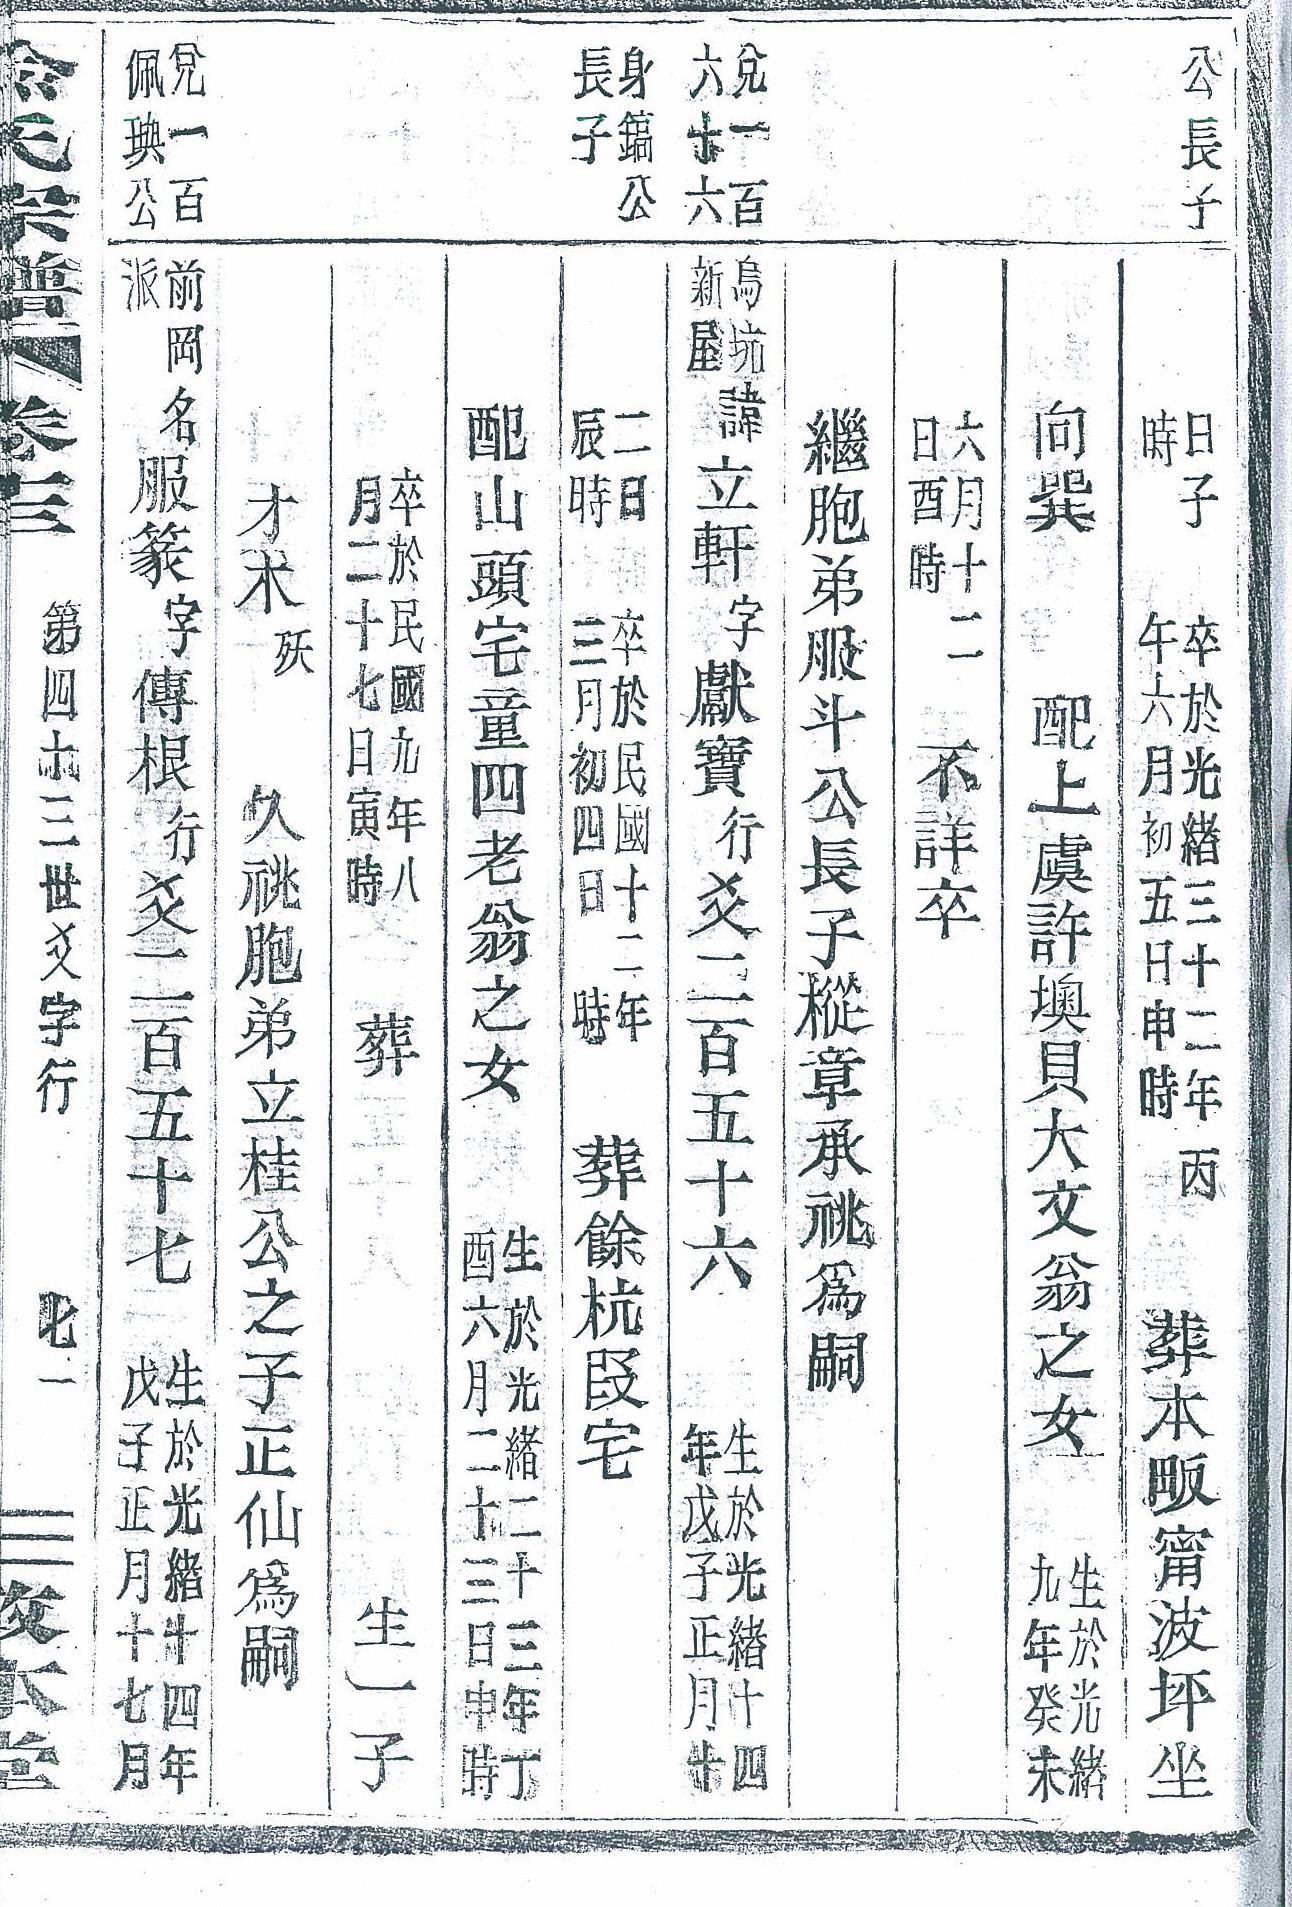 公長子
日子時 卒於光緒三十二年丙午六月初五日申時 葬本畈甯波坪坐
向巽 配上虞許墺貝大文翁之女 生於光緒九年癸未
六月十二日酉時 不詳卒
繼胞弟服斗公長子樅章承祧爲嗣
兌一百六十六
烏坑新屋 諱立軒字獻寶行爻二百五十六 生於光緒十四年戊子正月廿
身鎬公長子
二日辰時 卒於民國十二年三月初四日 時 葬餘杭叚宅
配山頭宅童四老翁之女 生於光緒二十三年丁酉六月二十三日申時
卒於民國九年八月二十七日寅時 葬 生一子
才木 殀 久祧胞弟立桂公之子正仙爲嗣
兌一百 佩琠公
前岡派 名服篆字傳根行爻二百五十七 生於光緒十四年戊子正月十七月
氏宗譜 卷三 第四十三世爻字行 敦本堂